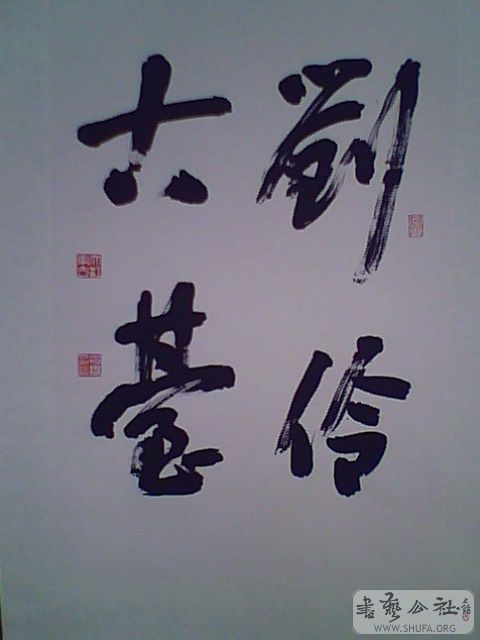 劉伶
古臺
書藝公社
WWW.SHUFA.ORG